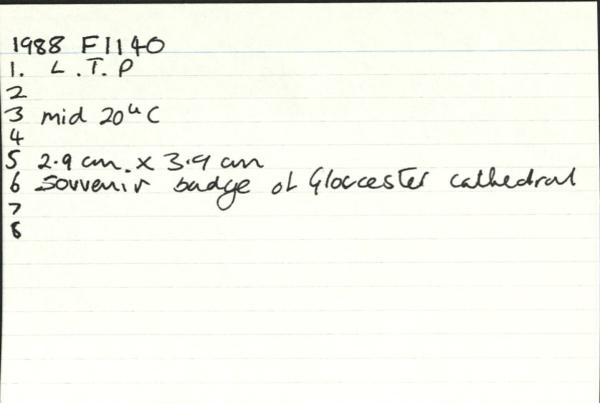 1988 F1140
1. L.T.P
2
3 mid 20th C
4
5 2.9 cm. x 3.9 cm
6 Souvenir badge of Gloucester cathedral
7
8